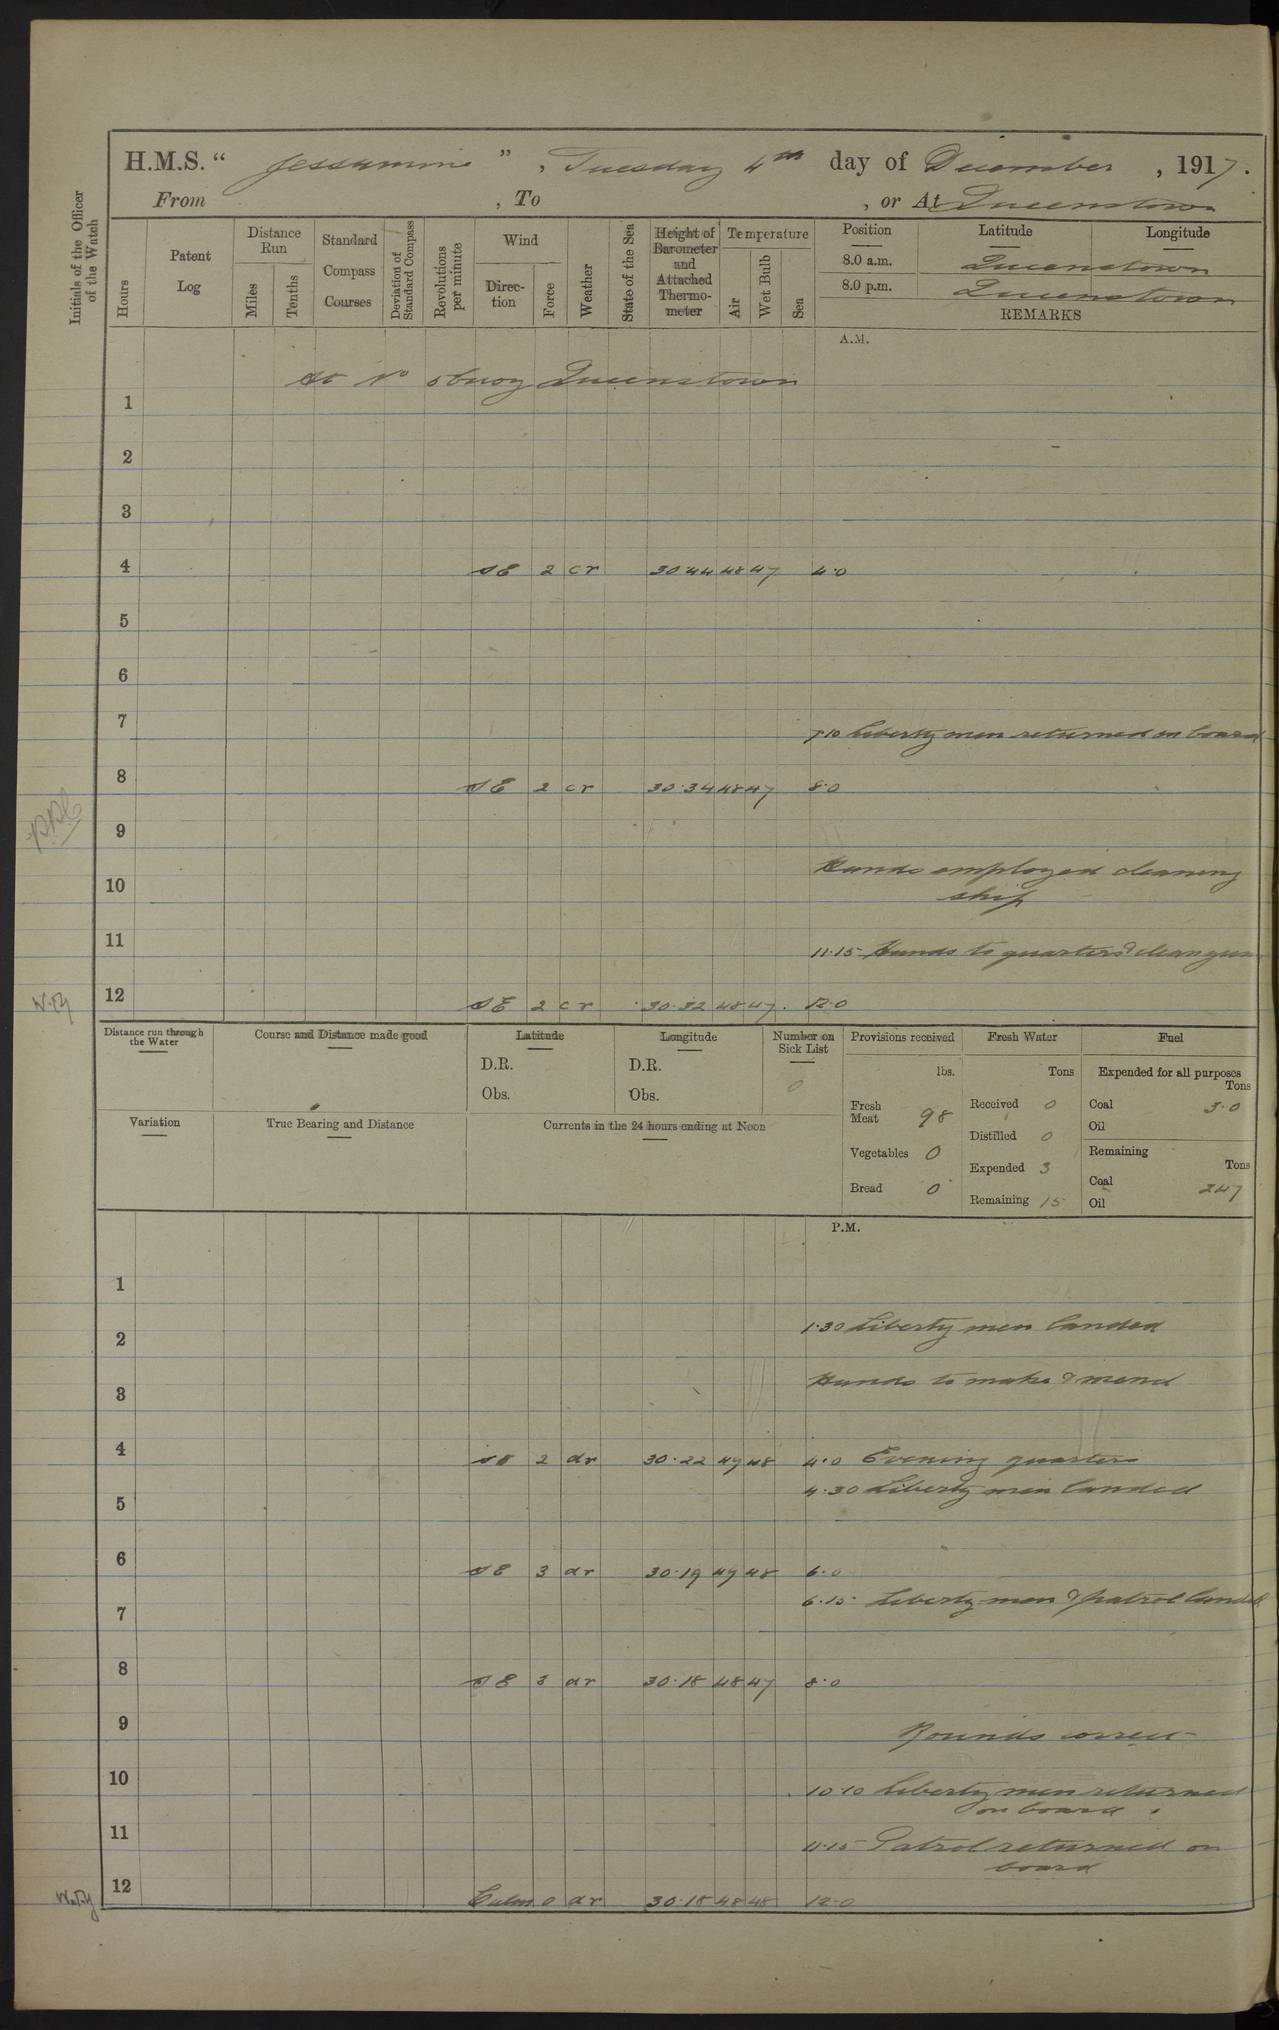 H.M.S. “ Jessamine ” , Tuesday 4th day of December , 1917.
From , To , or At Queenstown
Initials of the Officer of the Watch
Hours
Patent Log
Distance Run
Miles Tenths
Standard Compass Courses
Deviation of Standard Compass
Revolutions per minute
Wind
Direction Force
Weather
State of the Sea
Height of Barometer and Attached Thermometer
Temperature
Air Wet Bulb Sea
Position Latitude Longitude
8.0 a.m. Queenstown
8.0 p.m. Queenstown
REMARKS
A.M.
At No buoy Queenstown
1
2
3
4 SE 2 cr 30.44 48 47 4.0
5
6
7
7.10 Liberty men returned on board
8 SE 2 cr 30.34 48 47 8.0
9
Hands employed cleaning
10
ship
11
11.15 Hands to quarters & clean guns
12 SE 2 cr 30.32 48 47 12.0
Distance run through the Water
Course and Distance made good
Latitude
D.R.
Obs.
Longitude
D.R.
Obs.
Number on Sick List
0
Provisions received
lbs.
Fresh Meat 98
Vegetables 0
Bread 0
Fresh Water
Tons
Received 0
Distilled 0
Expended 3
Remaining 15
Fuel
Expended for all purposes
Tons
Coal 3.0
Oil
Remaining
Tons
Coal 247
Oil
Variation
True Bearing and Distance
Currents in the 24 hours ending at Noon
P.M.
1
1.30 Liberty men landed
2
Hands to make & mend
3
4 SE 2 dr 30.22 49 48 4.0 Evening quarters
4.30 Liberty men landed
5
6 SE 3 dr 30.19 49 48 6.0
6.15 Liberty men & patrol landed
7
8 SE 3 dr 30.18 48 47 8.0
9
Rounds correct
10
10.10 Liberty men returned
on board
11
11.15 Patrol returned on
board
12 Calm 0 dr 30.18 48 48 12.0